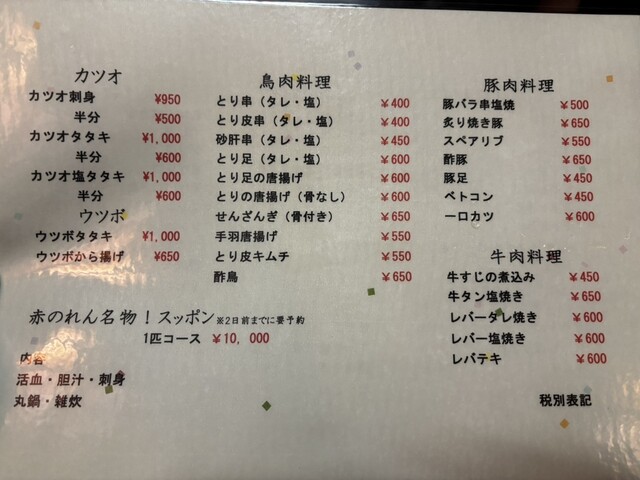 カツオ
カツオ刺身 ¥950
半分 ¥500
カツオタタキ ¥1,000
半分 ¥600
カツオ塩タタキ ¥1,000
半分 ¥600
ウツボ
ウツボタタキ ¥1,000
ウツボから揚げ ¥650
鳥肉料理
とり串（タレ・塩） ¥400
とり皮串（タレ・塩） ¥400
砂肝串（タレ・塩） ¥450
とり足（タレ・塩） ¥600
とり足の唐揚げ ¥600
とりの唐揚げ（骨なし） ¥600
せんざんぎ（骨付き） ¥650
手羽唐揚げ ¥550
とり皮キムチ ¥550
酢鳥 ¥650
豚肉料理
豚バラ串塩焼 ¥500
炙り焼き豚 ¥650
スペアリブ ¥550
酢豚 ¥650
豚足 ¥450
ベトコン ¥450
一口カツ ¥600
牛肉料理
牛すじの煮込み ¥450
牛タン塩焼き ¥650
レバータレ焼き ¥600
レバー塩焼き ¥600
レバテキ ¥600
赤のれん名物！スッポン※2日前までに要予約
1匹コース ¥10,000
内容
活血・胆汁・刺身
丸鍋・雑炊
税別表記